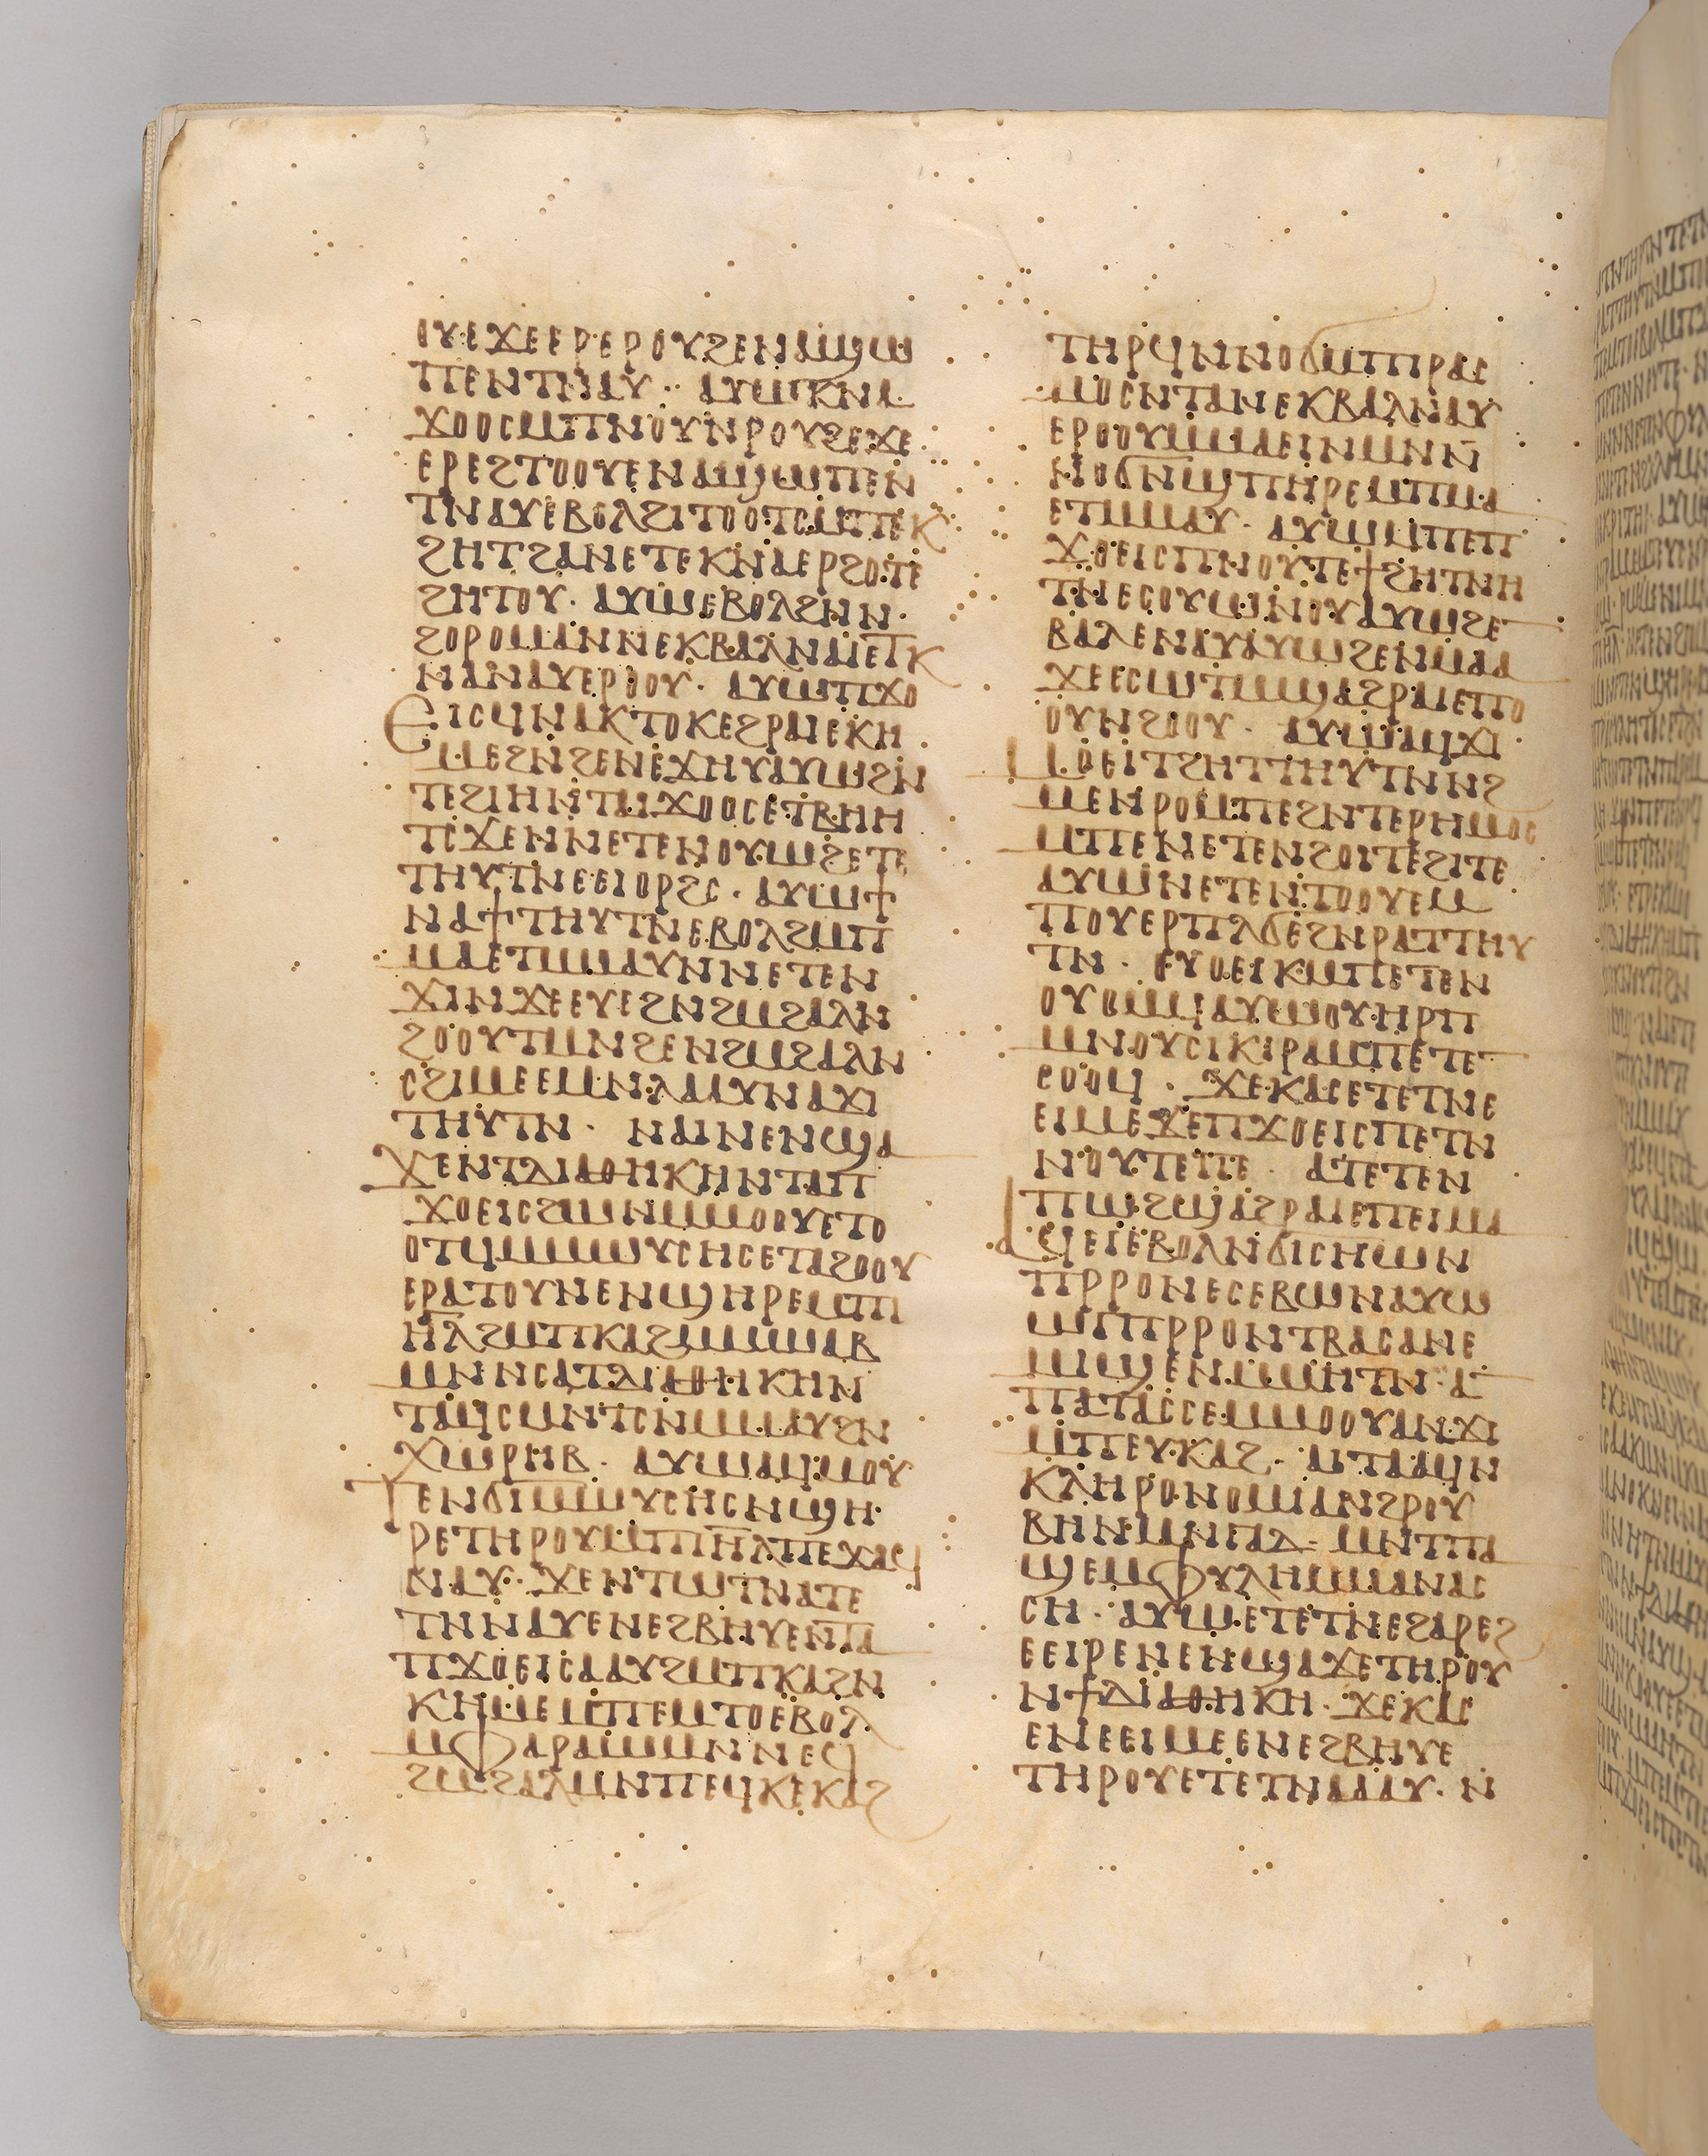 ⲟⲩⲉϫⲉⲉⲣⲉⲣⲟⲩϩⲉⲛⲁϣⲱ
ⲡⲉⲛⲧⲛⲁⲩ·· ⲁⲩⲱⲕⲛⲁ
ϫⲟⲟⲥⲙⲡⲛⲟⲩⲛⲣⲟⲩϩⲉϫⲉ
ⲉⲣⲉϩⲧⲟⲟⲩⲉⲛⲁϣⲱⲡⲉⲛ
ⲧⲛⲁⲩⲉⲃⲟⲗϩⲓⲧⲟⲟⲧⲥⲙⲡⲉⲕ
ϩⲏⲧϩⲁⲛⲉⲧⲉⲕⲛⲁⲉⲣϩⲟⲧⲉ
ϩⲏⲧⲟⲩ· ⲁⲩⲱⲉⲃⲟⲗϩⲛⲛ
ϩⲟⲣⲟⲙⲁⲛⲛⲉⲕⲃⲁⲗⲛⲁⲓⲉⲧⲕ
ⲛⲁⲛⲁⲩⲉⲣⲟⲟⲩ· ⲁⲩⲱⲡϫⲟ
ⲉⲓⲥϥⲛⲁⲕⲧⲟⲕⲉϩⲣⲁⲓⲉⲕⲏ
ⲙⲉϩⲛϩⲉⲛⲉϫⲏⲩⲁⲩⲱϩⲛ
ⲧⲉϩⲓⲏⲛⲧⲁⲓϫⲟⲟⲥⲉⲧⲃⲏⲏ
ⲧⲥϫⲉⲛⲛⲉⲧⲉⲛⲟⲩⲱϩⲉⲧⲉ
ⲧⲏⲩⲧⲛⲉⲉⲓⲟⲣϩⲥ· ⲁⲩⲱϯ
ⲛⲁϯⲧⲏⲩⲧⲛⲉⲃⲟⲗϩⲙⲡ
ⲙⲁⲉⲧⲙⲙⲁⲩⲛⲛⲉⲧⲉⲛ
ϫⲓⲛϫⲉⲉⲩⲉϩⲛϩⲙϩⲁⲗⲛ
ϩⲟⲟⲩⲧⲙⲛϩⲉⲛϩⲙϩⲁⲗⲛ
ⲥϩⲓⲙⲉⲉⲙⲛⲗⲁⲁⲩⲛⲁϫⲓ
ⲧⲏⲩⲧⲛ· ⲛⲁⲓⲛⲉⲛϣⲁ
ϫⲉⲛⲧⲇⲓⲁⲑⲏⲕⲏⲛⲧⲁⲡ
ϫⲟⲉⲓⲥϩⲱⲛⲙⲙⲟⲟⲩⲉⲧⲟ
ⲟⲧϥⲙⲙⲱⲩⲥⲏⲥⲉⲧⲁϩⲟⲟⲩ
ⲉⲣⲁⲧⲟⲩⲛⲉⲛϣⲏⲣⲉⲙⲡⲓ
ⲏⲗϩⲙⲡⲕⲁϩⲙⲙⲱⲁⲃ
ⲙⲛⲛⲥⲁⲧⲇⲓⲁⲑⲏⲕⲏⲛ
ⲧⲁϥⲥⲙⲛⲧⲥⲛⲙⲙⲁⲩϩⲛ
ⲭⲱⲣⲏⲃ· ⲁⲩⲱⲁϥⲙⲟⲩ
ⲧⲉⲛϭⲓⲙⲱⲩⲥⲏⲥⲛϣⲏ
ⲣⲉⲧⲏⲣⲟⲩⲙⲡⲓⲏⲗⲡⲉϫⲁϥ
ⲛⲁⲩ· ϫⲉⲛⲧⲱⲧⲛⲁⲧⲉ
ⲧⲛⲛⲁⲩⲉⲛⲉϩⲃⲏⲩⲉⲛⲧⲁ
ⲡϫⲟⲉⲓⲥⲁⲁⲩϩⲙⲡⲕⲁϩⲛ
ⲕⲏⲙⲉⲙⲡⲉⲙⲧⲟⲉⲃⲟⲗ
ⲙⲫⲁⲣⲁⲱⲙⲛⲛⲉϥ
ϩⲙϩⲁⲗⲙⲛⲡⲉϥⲕⲉⲕⲁϩ
ⲧⲏⲣϥⲛⲛⲟϭⲙⲡⲓⲣⲁⲥ
ⲙⲟⲥⲛⲧⲁⲛⲉⲕⲃⲁⲗⲛⲁⲩ
ⲉⲣⲟⲟⲩⲙⲙⲁⲉⲓⲛⲙⲛⲛ
ⲛⲟϭⲛϣⲡⲏⲣⲉⲙⲡⲙⲁ
ⲉⲧⲙⲙⲁⲩ· ⲁⲩⲱⲙⲡⲉⲡ
ϫⲟⲉⲓⲥⲡⲛⲟⲩⲧⲉϯϩⲏⲧⲛⲏ
ⲧⲛⲉⲥⲟⲩⲱⲛⲟⲩⲁⲩⲱϩⲉ
ⲃⲁⲗⲉⲛⲁⲩⲁⲩⲱϩⲉⲛⲙⲁⲁ
ϫⲉⲉⲥⲱⲧⲙϣⲁϩⲣⲁⲓⲉⲡⲟ
ⲟⲩⲛϩⲟⲟⲩ· ⲁⲩⲱⲁϥϫⲓ
ⲙⲟⲉⲓⲧϩⲏⲧⲧⲏⲩⲧⲛⲛϩ
ⲙⲉⲛⲣⲟⲙⲡⲉϩⲛⲧⲉⲣⲏⲙⲟⲥ
ⲙⲡⲉⲛⲉⲧⲉⲛϩⲟⲓⲧⲉϩⲓⲧⲉ
ⲁⲩⲱⲛⲉⲧⲉⲛⲧⲟⲟⲩⲉⲙ
ⲡⲟⲩⲉⲣⲡⲗϭⲉϩⲛⲣⲁⲧⲧⲏⲩ
ⲧⲛ· ⲟⲩⲟⲉⲓⲕⲙⲡⲉⲧⲉⲛ
ⲟⲩⲟⲙϥⲁⲩⲱⲟⲩⲏⲣⲡ
ⲙⲛⲟⲩⲥⲓⲕⲓⲣⲁⲙⲡⲉⲧⲉ
ⲥⲟⲟϥ· ϫⲉⲕⲁⲥⲉⲧⲉⲧⲛⲉ
ⲉⲓⲙⲉϫⲉⲡϫⲟⲉⲓⲥⲡⲉⲧⲛ
ⲛⲟⲩⲧⲉⲡⲉ· ⲁⲧⲉⲧⲉⲛ
ⲡⲱϩϣⲁϩⲣⲁⲓⲉⲡⲉⲓⲙⲁ
ⲁϥⲉⲓⲉⲃⲟⲗⲛϭⲓⲥⲏⲱⲛ
ⲡⲣⲣⲟⲛⲉⲥⲉⲃⲱⲛⲁⲩⲱ
ⲱⲅⲡⲣⲣⲟⲛⲧⲃⲁⲥⲁⲛⲉ
ⲙⲓϣⲉⲛⲙⲙⲏⲧⲛ· ⲁ
ⲡⲁⲧⲁⲥⲥⲉⲙⲙⲟⲟⲩⲁⲛϫⲓ
ⲙⲡⲉⲩⲕⲁϩ· ⲁⲓⲧⲁⲁϥⲛ
ⲕⲗⲏⲣⲟⲛⲟⲙⲓⲁⲛϩⲣⲟⲩ
ⲃⲏⲛⲙⲛⲅⲁⲇ· ⲙⲛⲧⲡⲁ
ϣⲉⲙⲫⲩⲗⲏⲙⲙⲁⲛⲁⲥ
ⲥⲏ· ⲁⲩⲱⲉⲧⲉⲧⲛⲉϩⲁⲣⲉϩ
ⲉⲉⲓⲣⲉⲛⲉⲛϣⲁϫⲉⲧⲏⲣⲟⲩ
ⲛϯⲇⲓⲁⲑⲏⲕⲏ· ϫⲉⲕⲁⲥ
ⲉⲛⲉⲉⲓⲙⲉⲉⲛⲉϩⲃⲏⲩⲉ
ⲧⲏⲣⲟⲩⲉⲧⲉⲧⲛⲁⲁⲁⲩ· ⲛ